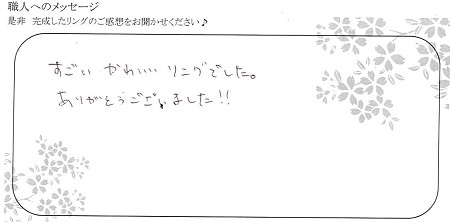 職人へのメッセージ
是非　完成したリングのご感想をお聞かせください♪
すごい かわいい リングでした。
ありがとうございました!!